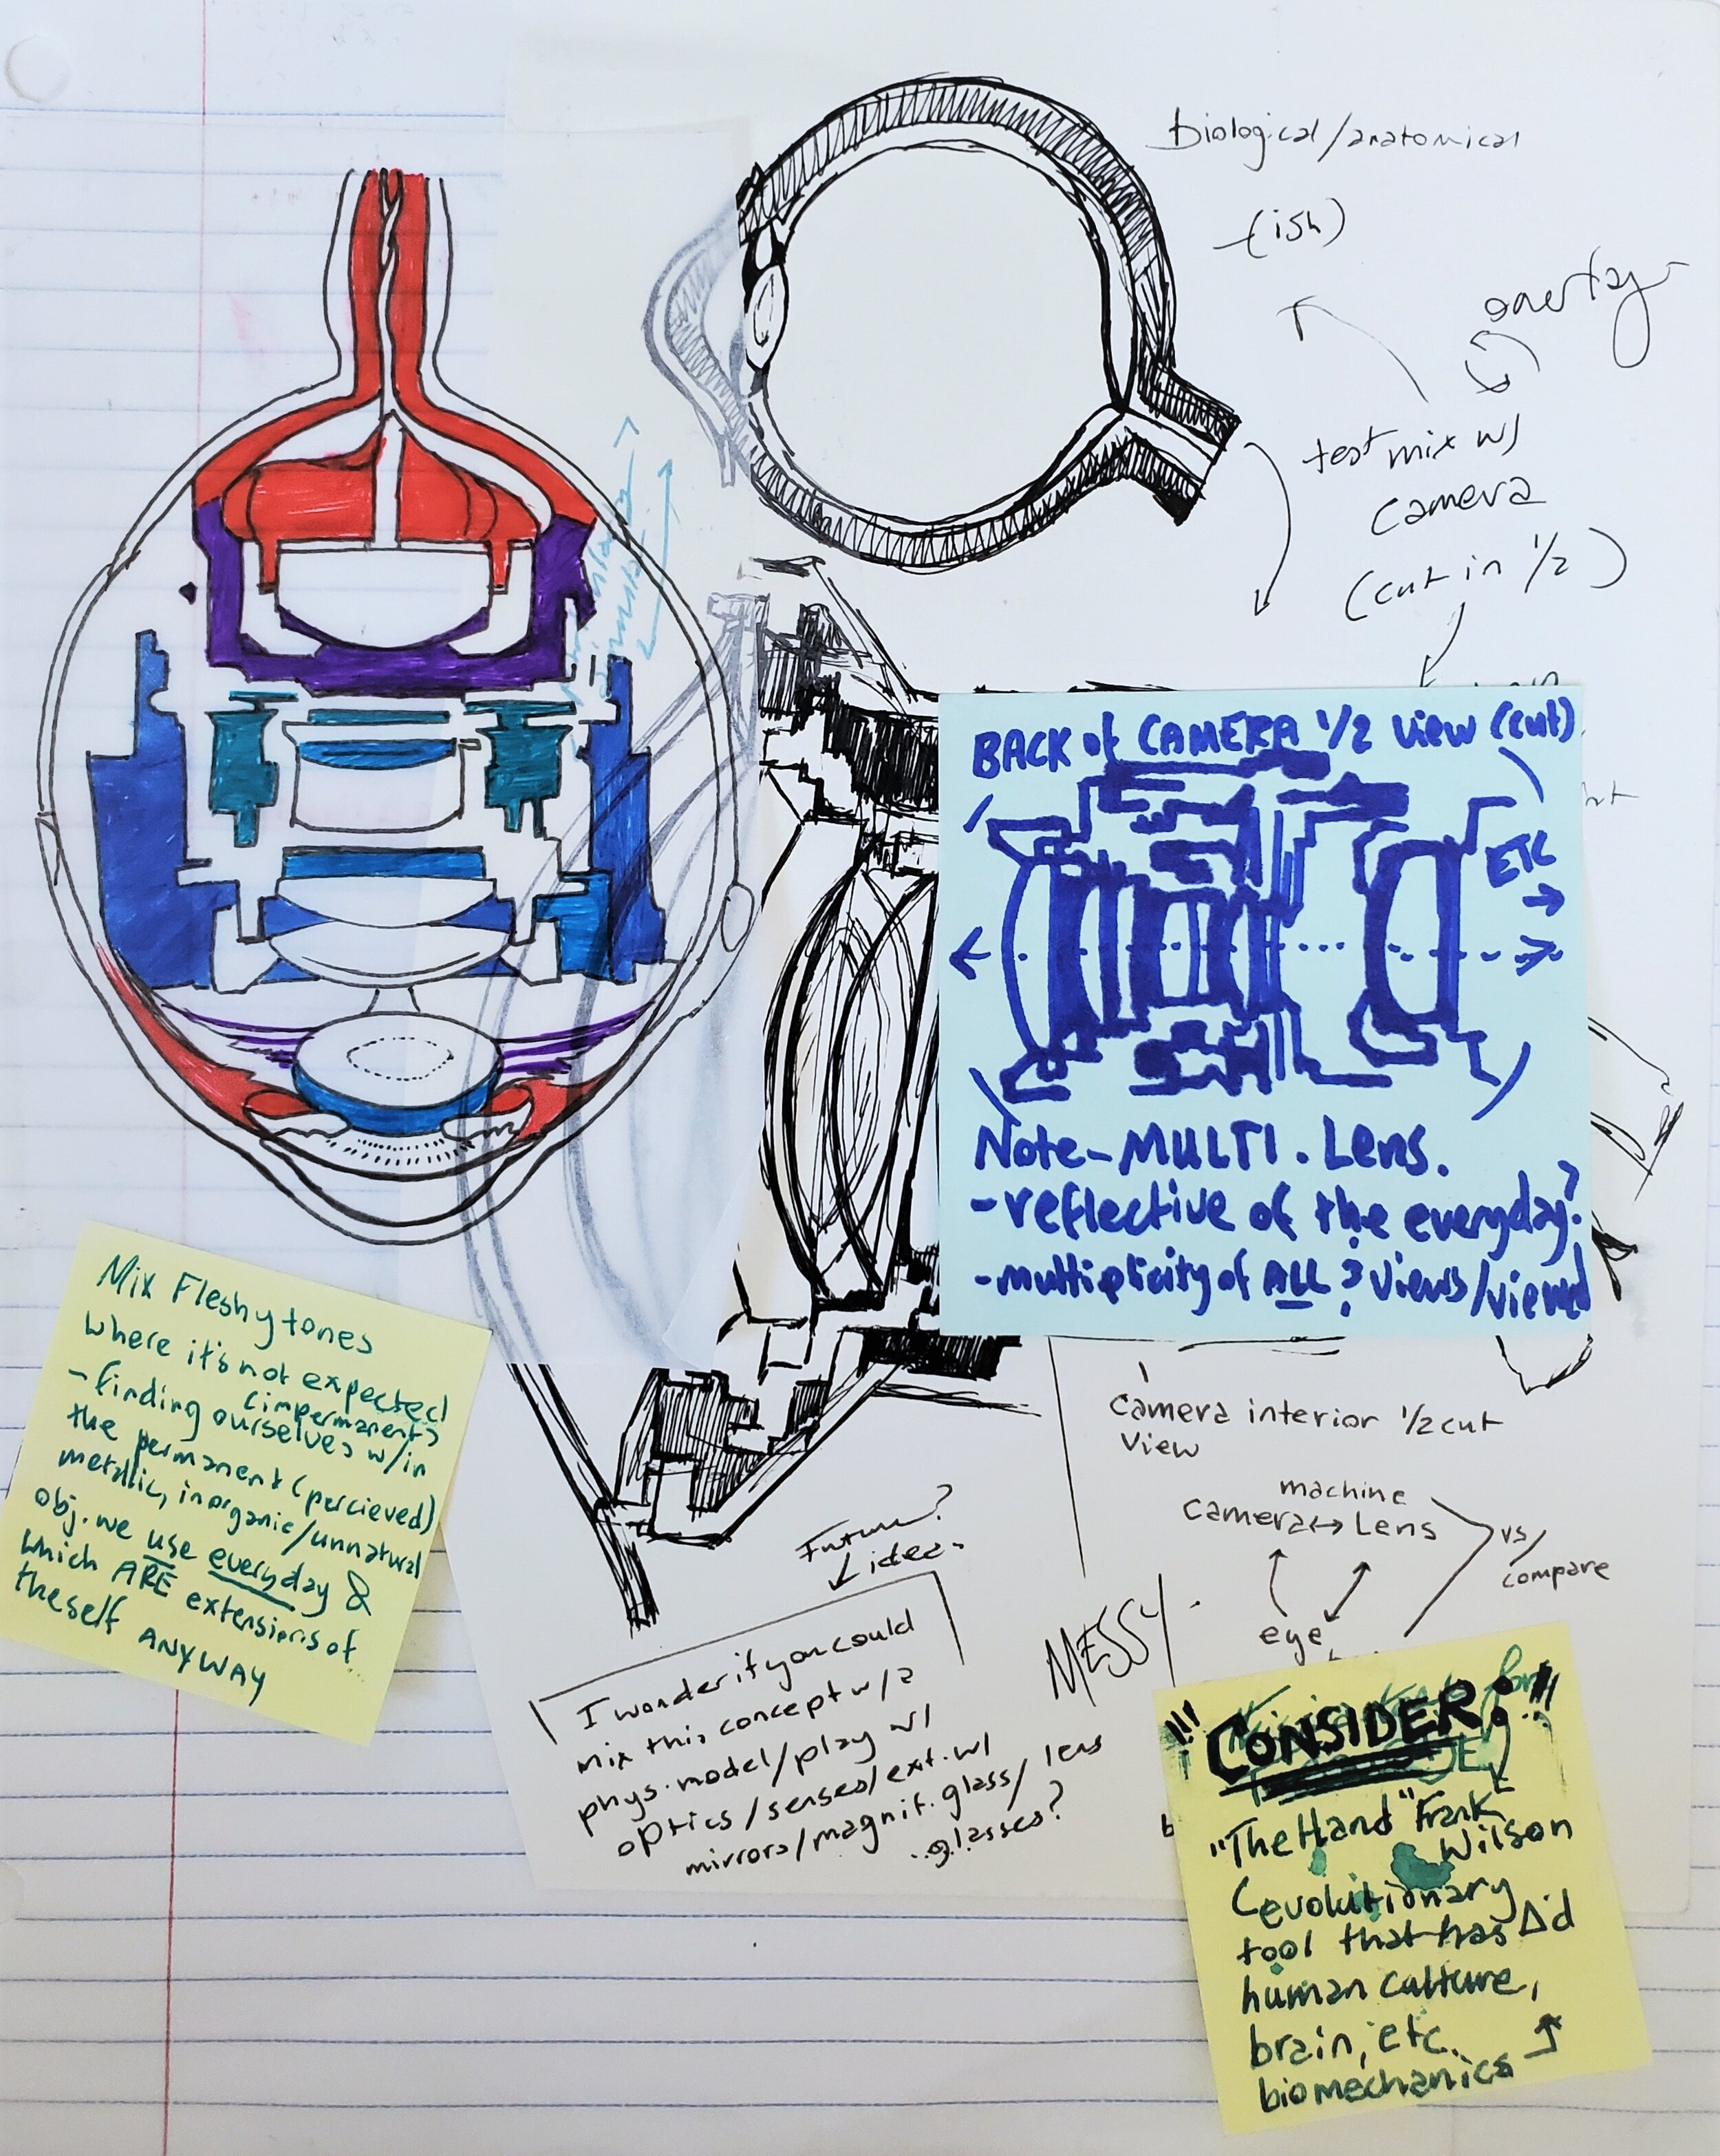 Biological/anatomical
(ish)
overlay
test mix w/
camera
(cut in 1/2)
BACK of CAMERA 1/2 view (cut)
ETC
Note- MULTI. Lens.
- reflective of the everyday?
- multiplicity of ALL? views/viewed
Mix Fleshy tones
where it's not expected
(impermanent)
- finding ourselves w/in
the permanent (percieved)
metallic, inorganic/unnatural
obj. we use everyday &
which ARE extensions of
theself ANYWAY
camera interior 1/2 cut
view
machine
camera↔Lens
vs/
compare
eye
Future?
idea-
MESSY.
I wonder if you could
mix this concept w/a
phys. model/play w/
optics/senses/ext. w/
mirrors/magnif. glass/ lens
..glasses?
!!! CONSIDER: !!!
"The Hand" Frank
Wilson
(evolutionary
tool that has Δ'd
human culture,
brain, etc.
biomechanics